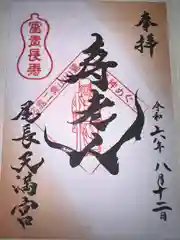 奉拝
令和六年八月十二日
寿老人
富貴長寿
尾長天満宮